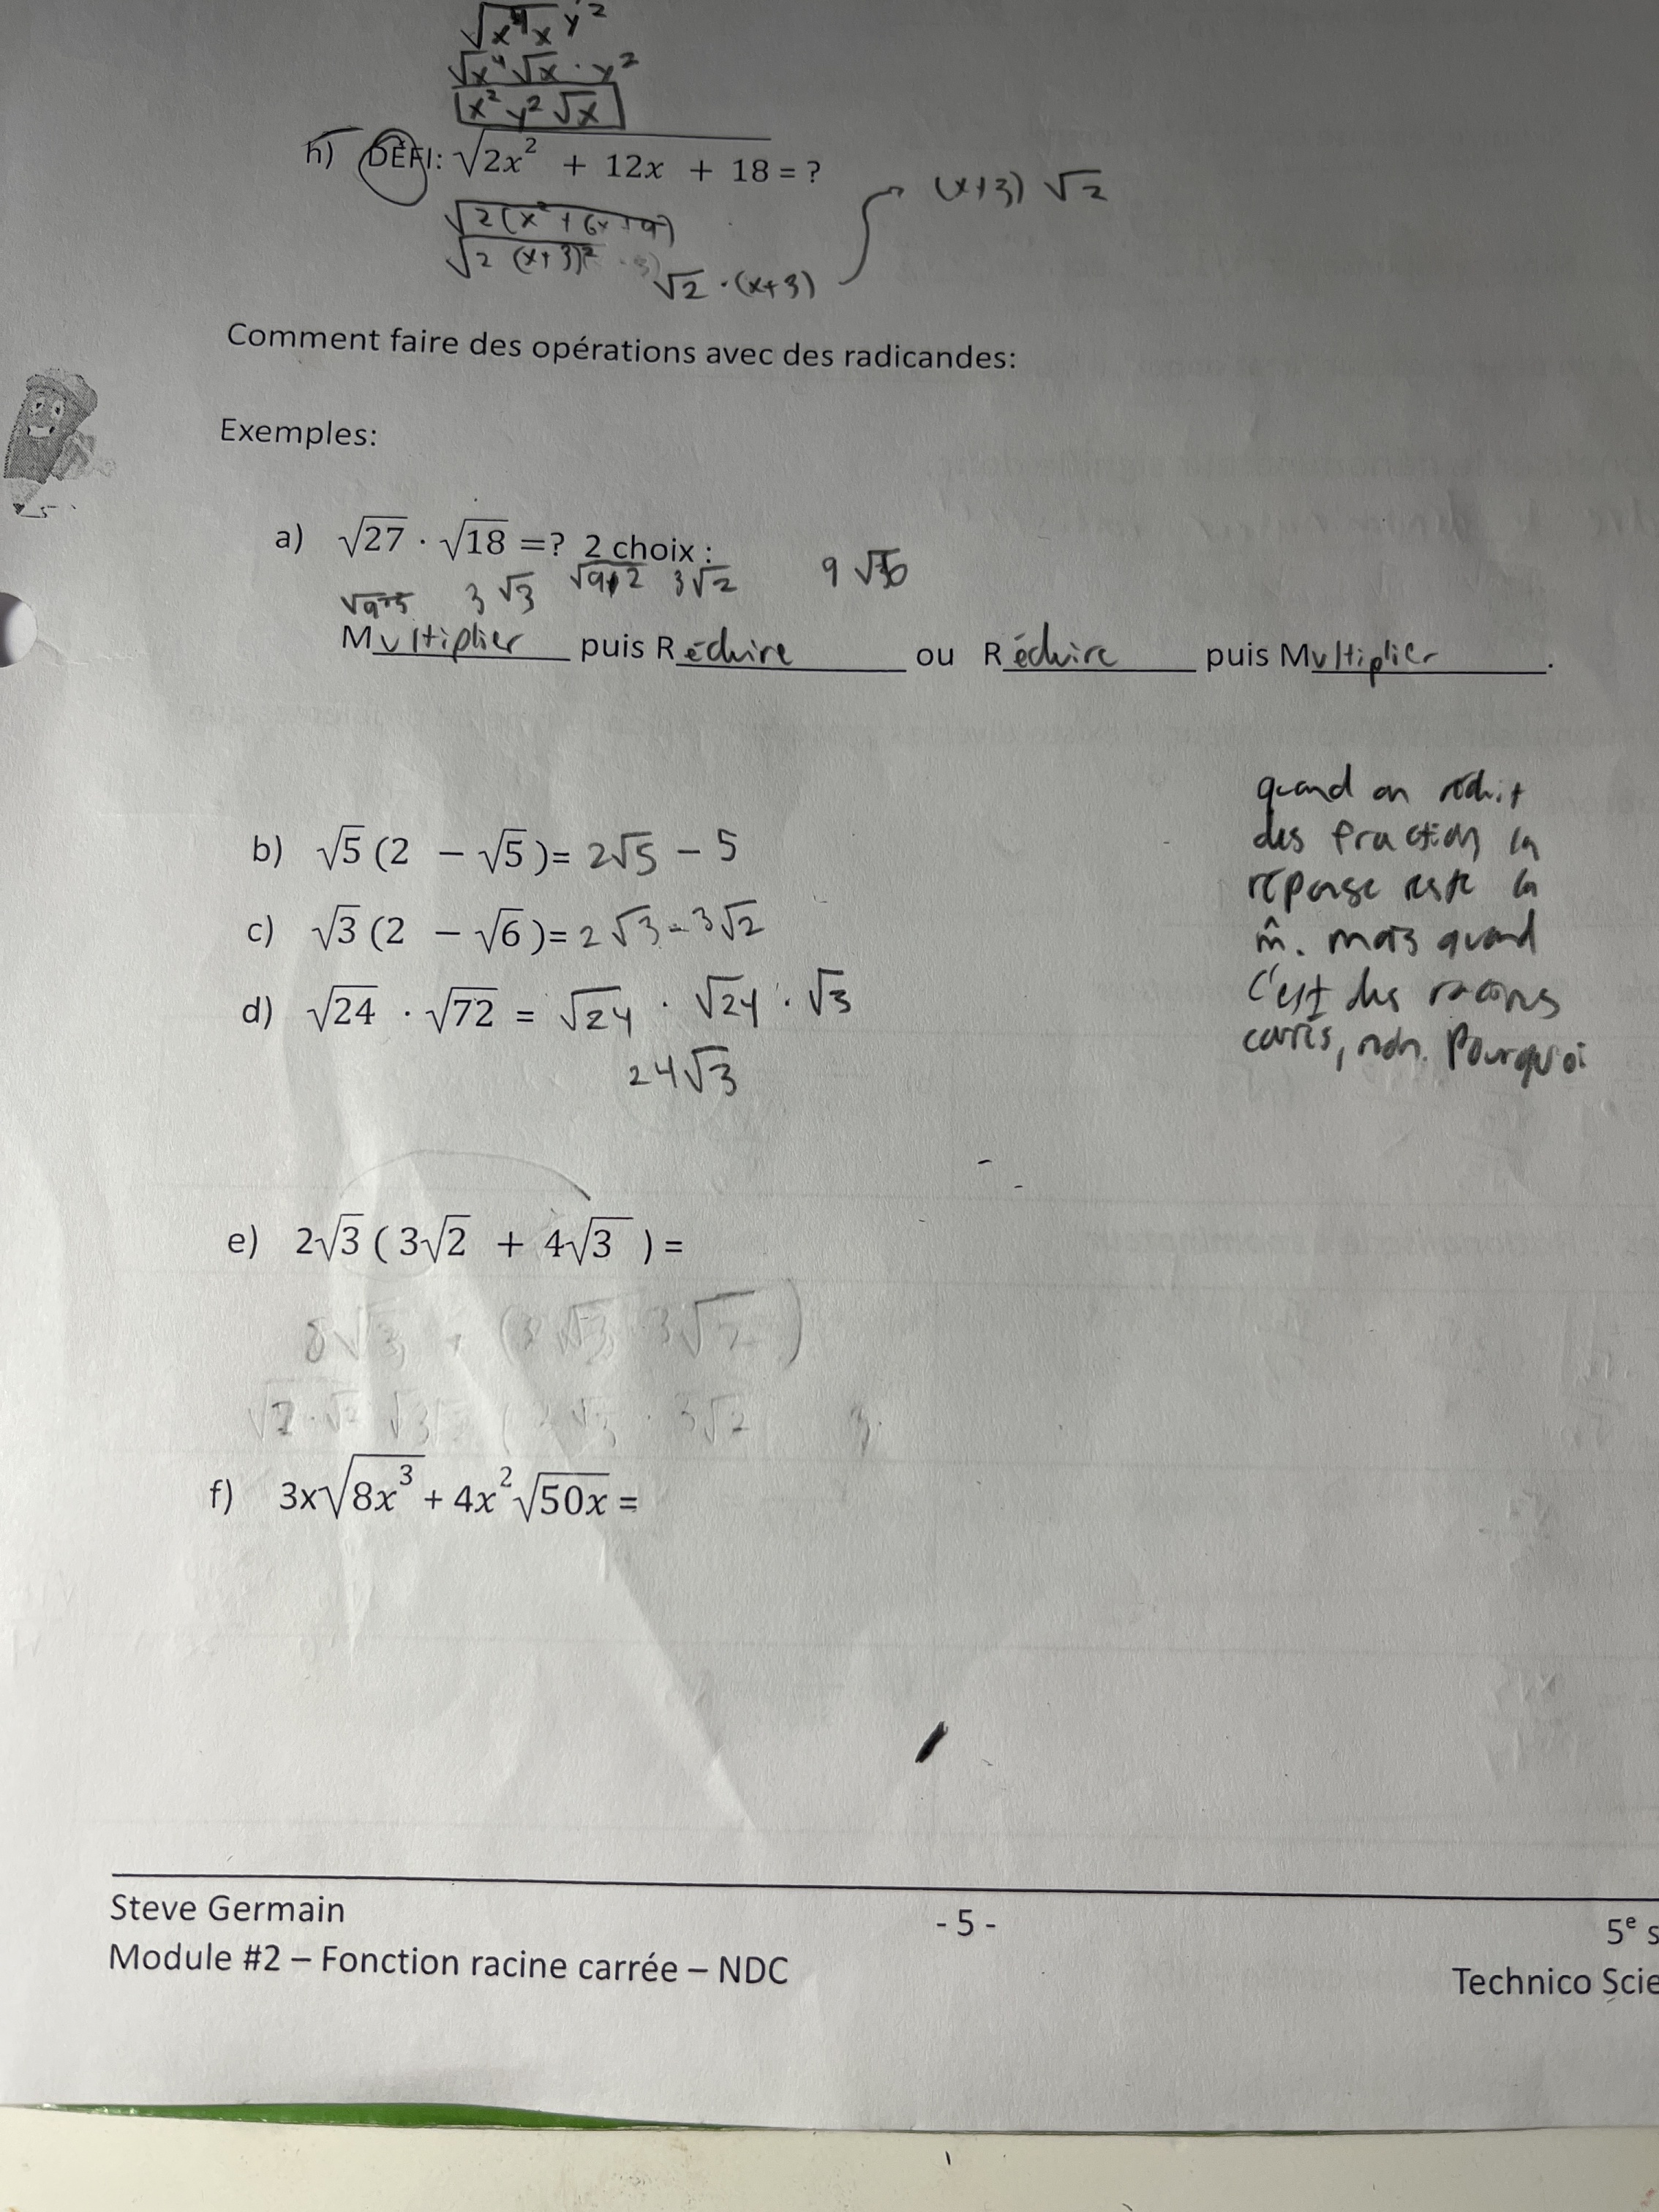 √x⁴x y²
√x⁴ √x · y²
x² y² √x
h) DÉFI: √2x² + 12x + 18 = ?
(x+3) √2
√2(x²+6x+9)
√2 (x+3)²
√2 · (x+3)
Comment faire des opérations avec des radicandes:
Exemples:
a) √27 · √18 =? 2 choix :
3√3 √9·2 3√2 9√6
Multiplier puis Réduire ou Réduire puis Multiplier.
quand on réduit
des fraction la
réponse reste la
m̂. mais quand
c'est des racines
carrés, non. Pourquoi
b) √5 (2 − √5)= 2√5 − 5
c) √3 (2 − √6)= 2√3 - 3√2
d) √24 · √72 = √24 · √24 · √3
24√3
e) 2√3 ( 3√2 + 4√3 ) =
f) 3x√8x³ + 4x²√50x =
Steve Germain
- 5 -
5e s
Module #2 – Fonction racine carrée – NDC
Technico Scie